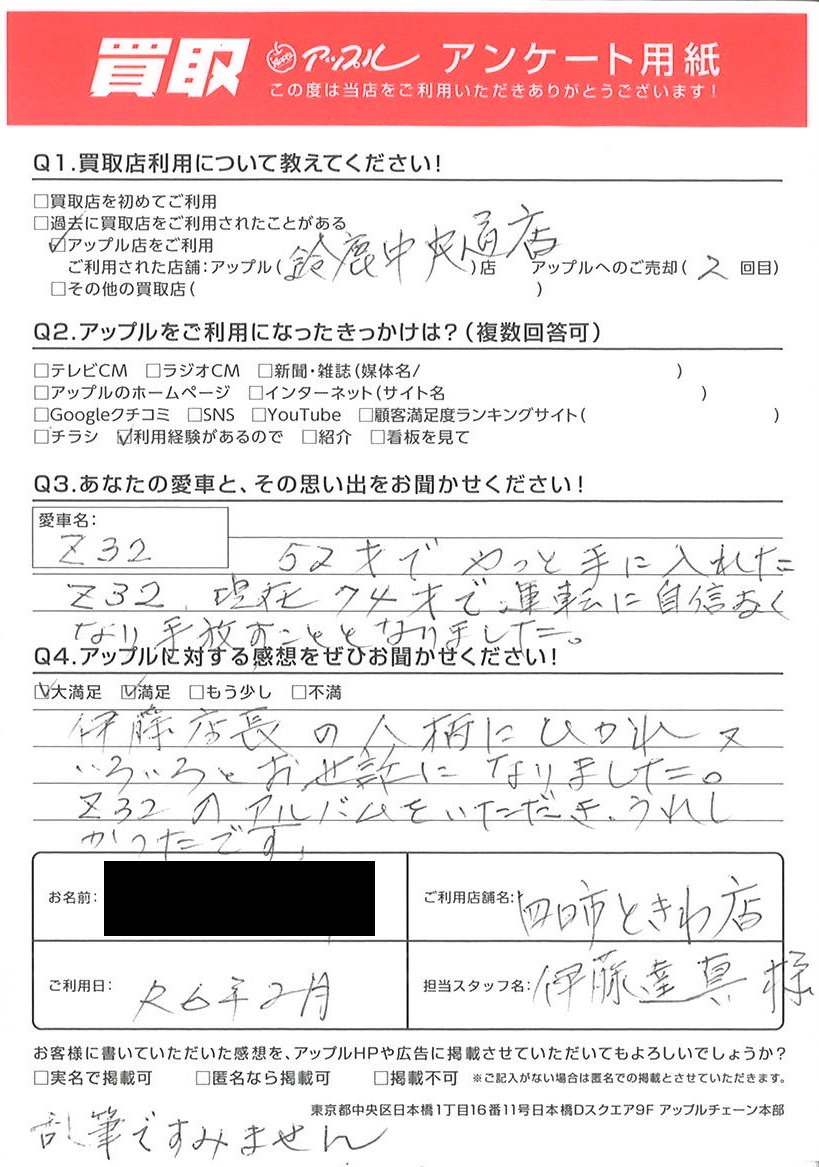 買取 アップル アンケート用紙
この度は当店をご利用いただきありがとうございます！
Q1.買取店利用について教えてください！
□買取店を初めてご利用
□過去に買取店をご利用されたことがある
☑アップル店をご利用
ご利用された店舗：アップル（鈴鹿中央道店）店　アップルへのご売却（２回目）
□その他の買取店（　）
Q2.アップルをご利用になったきっかけは？（複数回答可）
□テレビCM　□ラジオCM　□新聞・雑誌（媒体名/　）
□アップルのホームページ　□インターネット（サイト名　）
□Googleクチコミ　□SNS　□YouTube　□顧客満足度ランキングサイト（　）
□チラシ　☑利用経験があるので　□紹介　□看板を見て
Q3.あなたの愛車と、その思い出をお聞かせください！
愛車名：
Z32　52才でやっと手に入れた
Z32、現在74才で運転に自信なく
なり手放すこととなりました。
Q4.アップルに対する感想をぜひお聞かせください！
☑大満足　☑満足　□もう少し　□不満
伊藤店長の人柄にひかれ又
いろいろとお世話になりました。
Z32のアルバムをいただき、うれし
かったです。
お名前：
ご利用店舗名：四日市ときわ店
ご利用日：R6年2月
担当スタッフ名：伊藤達真様
お客様に書いていただいた感想を、アップルHPや広告に掲載させていただいてもよろしいでしょうか？
□実名で掲載可　□匿名なら掲載可　□掲載不可　※ご記入がない場合は匿名での掲載とさせていただきます。
東京都中央区日本橋1丁目16番11号日本橋Dスクエア9F アップルチェーン本部
乱筆ですみません